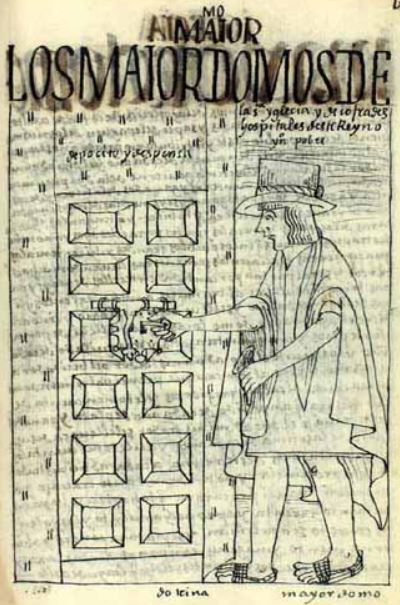 MO
MAIOR
LOS MAIORDOMOS DE
la sta yglecia y de cofrades
y ospitales deste Reyno
yn pobre
depocito y despensa
dotrina
mayordomo